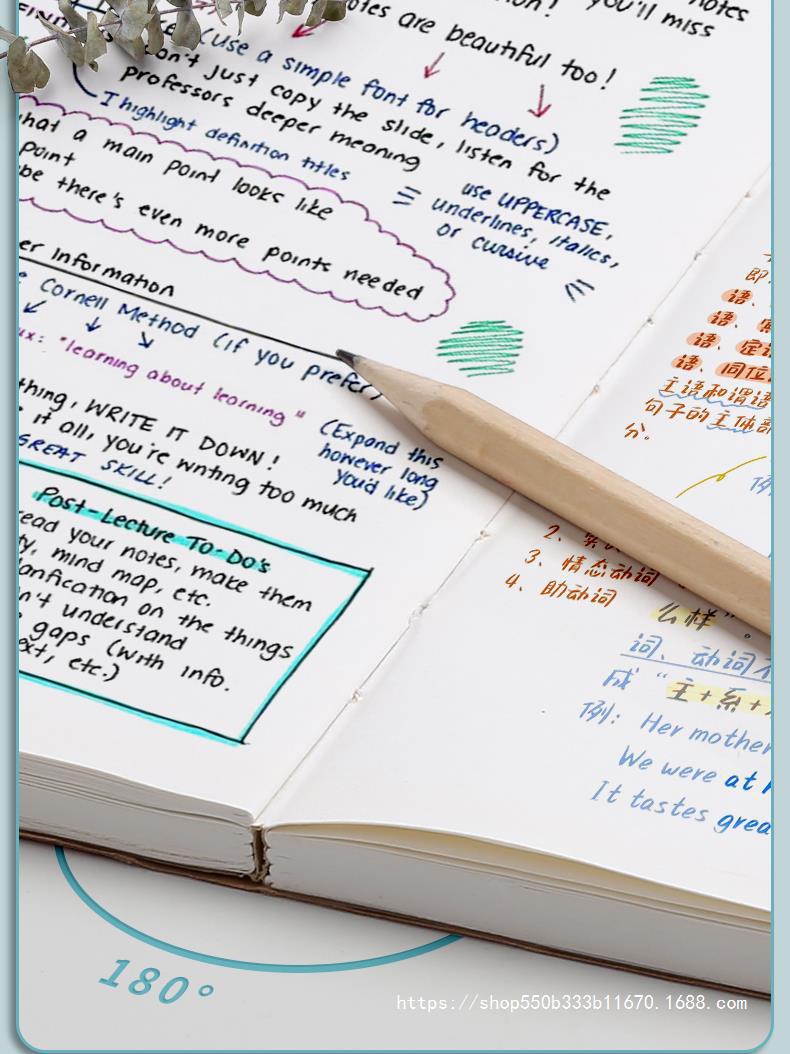 notes
you'll miss
notes are beautiful too!
(Use a simple font for headers)
Don't just copy the slide, listen for the
professors deeper meaning
I highlight definition titles
what a main point looks like
point
be there's even more points needed
use UPPERCASE,
underlines, italics,
or cursive
er Information
Cornell Method (if you prefer)
ux: "learning about learning"
thing, WRITE IT DOWN!
it all, you're writing too much
GREAT SKILL!
(Expand this
however long
you'd like)
Post-Lecture To-Do's
read your notes, make them
ty, mind map, etc.
larification on the things
n't understand
gaps (with info.
ext, etc.)
即
语、
语、
语、定语
语、同位
主语和谓语
句子的主体部
分。
例
2、
3、情态动词
4、助动词
么样"。
词、动词不
成"主+系+
例: Her mother
We were at
It tastes grea
180°
https://shop550b333b11670.1688.com